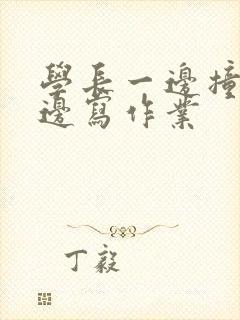 學長一邊撞
邊寫作業
丁毅